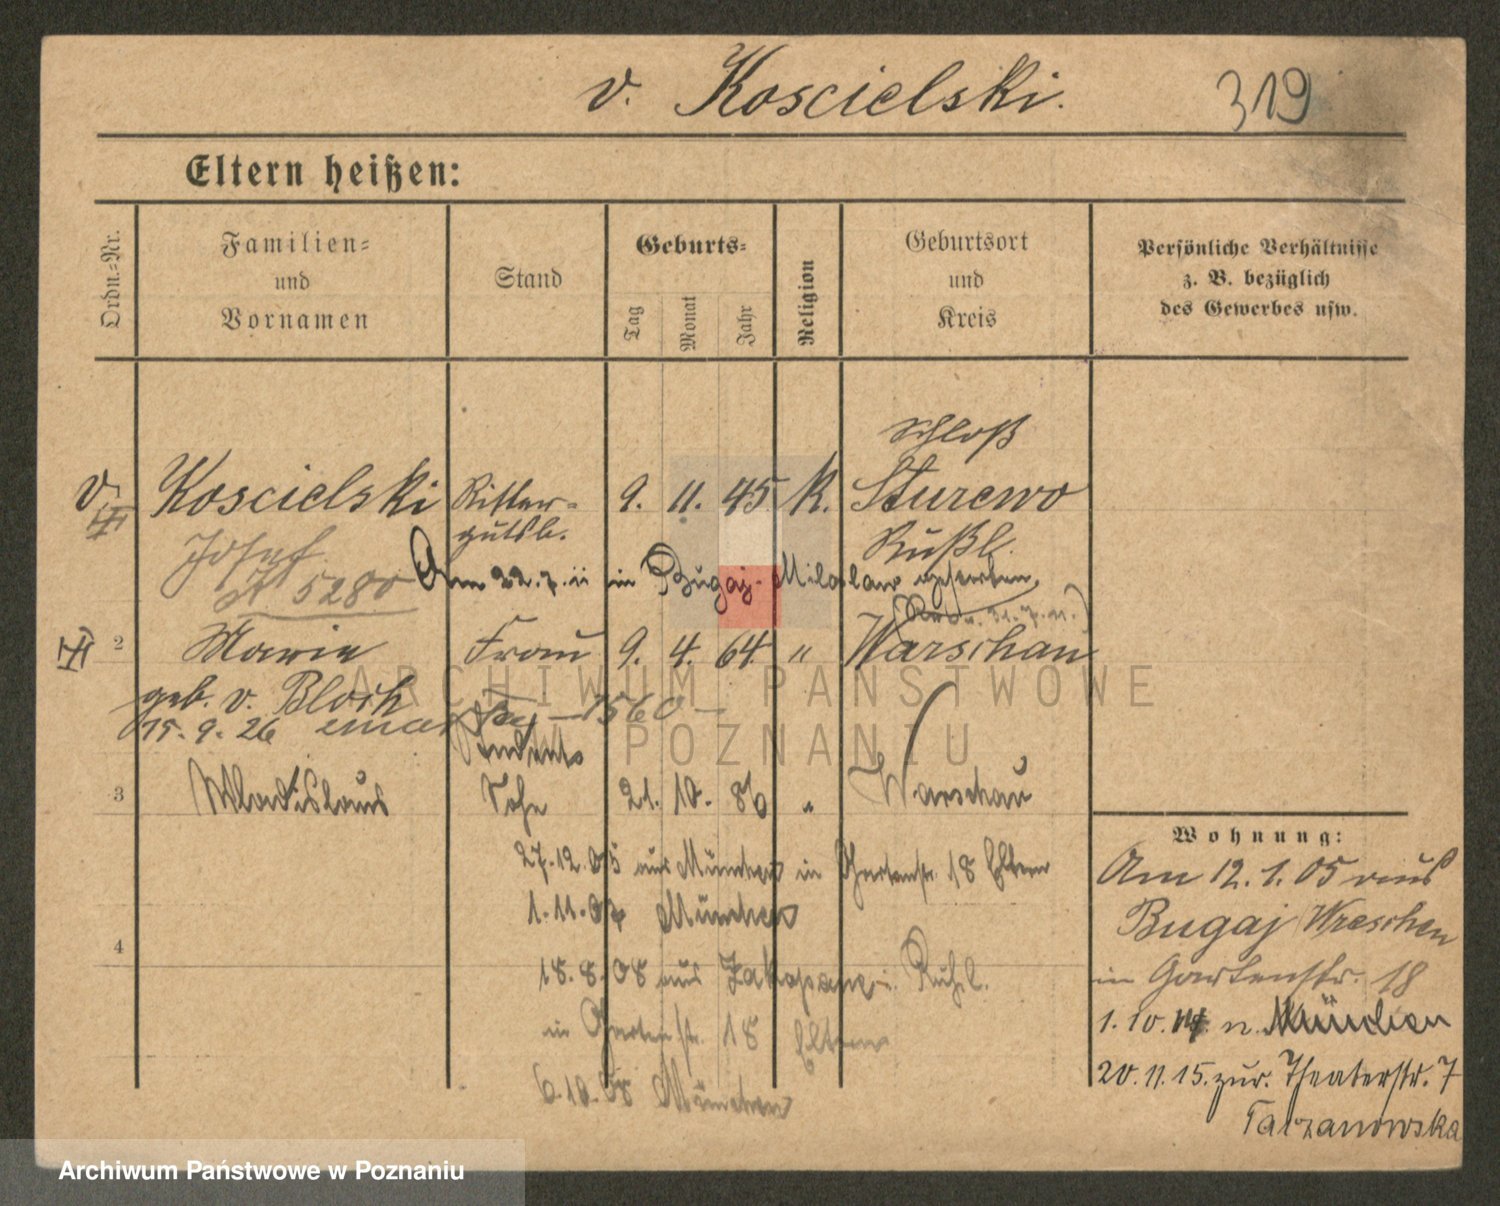 v. Koscielski.
319
Eltern heißen:
Ordn.-Nr.
Familien-
und
Vornamen
Stand
Geburts-
Tag
Monat
Jahr
Religion
Geburtsort
und
Kreis
Persönliche Verhältnisse
z. B. bezüglich
des Gewerbes usw.
Schloß
v. Koscielski Ritter- 9. 11. 45. K. Sturewo
gutsb. Rußl.
Josef
5280
Am 22.7.11 in Bugaj-Miloslaw gestorben.
31.7.11.)
2 Marie Frau 9. 4. 64. " Warschau
geb. v. Bloch
15.9.26 1560
Student
3 Wladislaus Sohn 21. 10. 86 " Warschau
27.12.05 aus München in Gartenstr. 18 Eltern
1.11.07 München
4
18.8.08 aus Zakopane i. Rußl.
in Gartenstr. 18 Eltern
6.10.08 München
Wohnung:
Am 12.1.05 aus
Bugaj Wreschen
in Gartenstr. 18
1.10.14. n. München
20.11.15. zur. Theaterstr. 7
Tarzanowska
ARCHIWUM PAŃSTWOWE
W POZNANIU
Archiwum Państwowe w Poznaniu